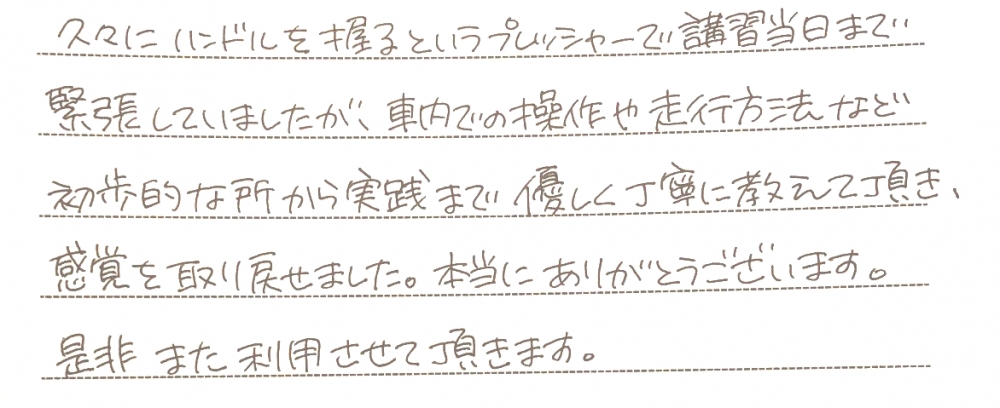 久々にハンドルを握るというプレッシャーで講習当日まで
緊張していましたが、車内での操作や走行方法など
初歩的な所から実践まで優しく丁寧に教えて頂き、
感覚を取り戻せました。本当にありがとうございます。
是非また利用させて頂きます。